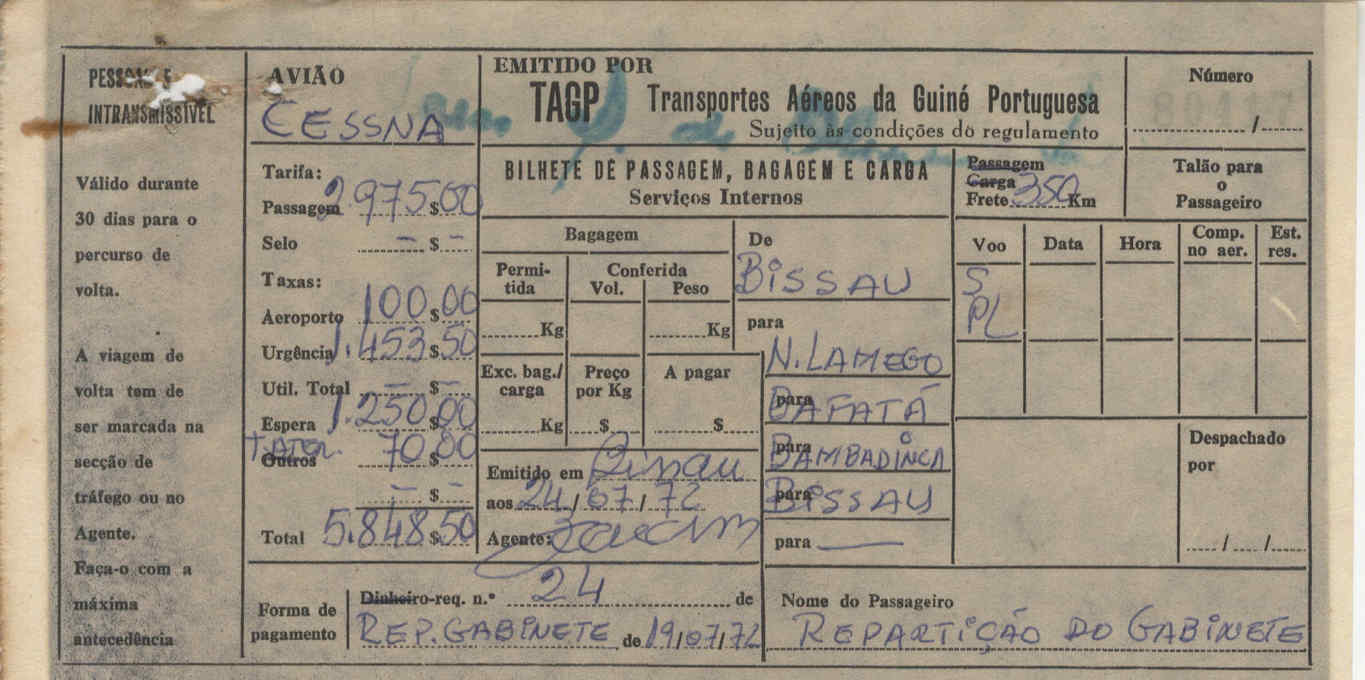 PESSOAL E
INTRANSMISSÍVEL
Válido durante
30 dias para o
percurso de
volta.
A viagem de
volta tem de
ser marcada na
secção de
tráfego ou no
Agente.
Faça-o com a
máxima
antecedência
AVIÃO
CESSNA
Tarifa:
Passagem 2975$00
Selo – $ –
Taxas:
Aeroporto 100$00
Urgência 1.453$50
Util. Total – $ –
Espera 1.250$00
T. ATER. 70$00
Outros
– $ –
Total 5.848$50
EMITIDO POR
TAGP Transportes Aéreos da Guiné Portuguesa
Sujeito às condições do regulamento
BILHETE DE PASSAGEM, BAGAGEM E CARGA
Serviços Internos
Bagagem
Permi-tida
Conferida
Vol. Peso
Kg Kg
Exc. bag./carga
Preço por Kg
A pagar
Kg $ $
Emitido em Bissau
aos 24/07/72
Agente:
De
BISSAU
para
N. LAMEGO
para
CAFATÁ
para
BAMBADINCA
para
BISSAU
para —
Passagem
Carga
Frete 350 Km
Número
80117
/
Talão para
o
Passageiro
Voo Data Hora Comp. no aer. Est. res.
S
PL
Despachado
por
/ /
Forma de
pagamento
Dinheiro-req. n.º 24 de
REP. GABINETE de 19/07/72
Nome do Passageiro
REPARTIÇÃO DO GABINETE